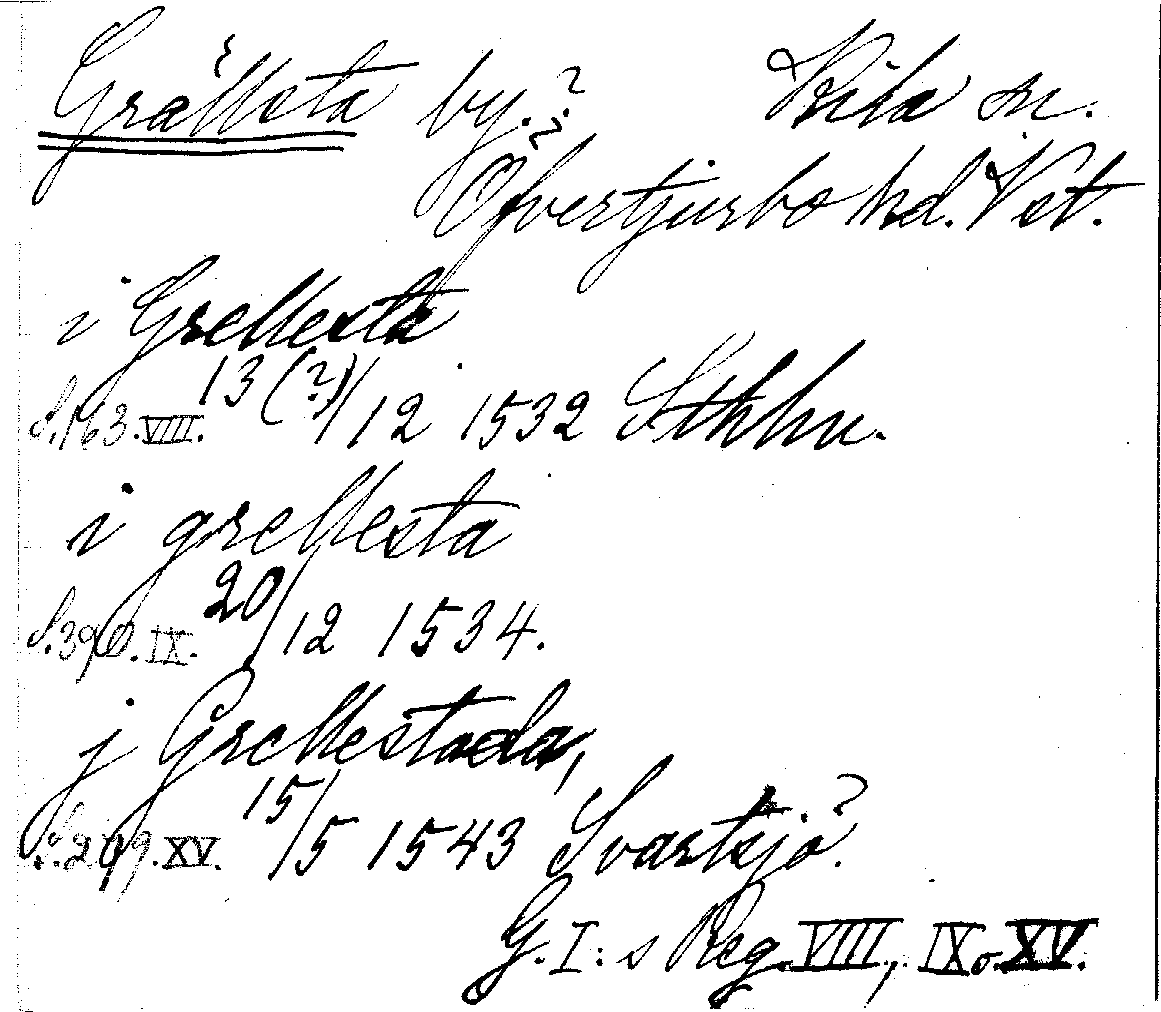 Grällsta by.? Kila sn.
Öfvertjurbo hd. Vst.
i Grellesta
S.163.VIII. 13(?)/12 1532 Sthlm.
i grellesta
S.390.IX. 20/12 1534.
j Grellestada,
S.279.XV. 15/5 1543 Svartsjö.
G.I:s Reg. VIII, IX o. XV.